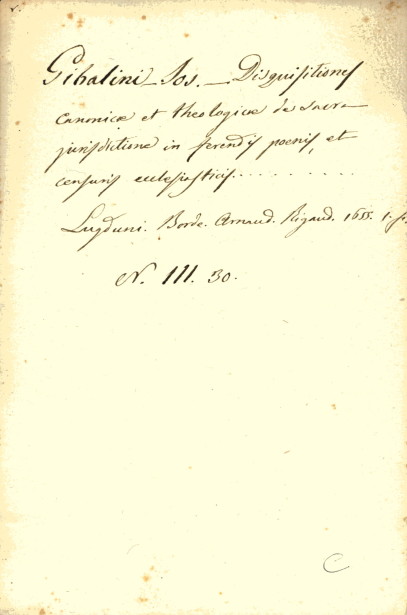 Gibalini Jos. Disquisitiones
canonicæ et theologicæ de sacra
jurisdictione in ferendis poenis, et
censuris ecclesiasticis..........
Lugduni. Borde. Arnaud. Rigaud. 1655. 1.
N. III. 30.
C